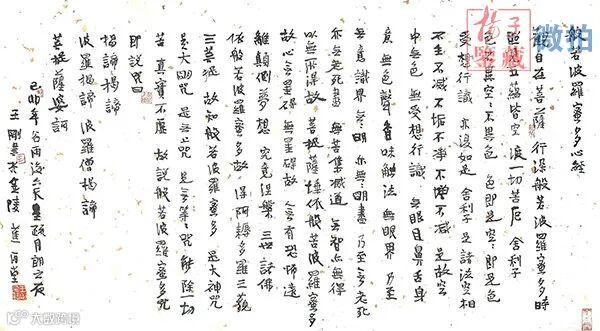 般若波羅蜜多心經
觀自在菩薩 行深般若波羅蜜多時
照見五蘊皆空 渡一切苦厄 舍利子
色不異空 空不異色 色即是空 空即是色
受想行識 亦復如是 舍利子 是諸法空相
不生不滅 不垢不淨 不增不減 是故空
中無色 無受想行識 無眼耳鼻舌身
意 無色聲香味觸法 無眼界 乃至
無意識界 無無明 亦無無明盡 乃至無老死
亦無老死盡 無苦集滅道 無智亦無得
以無所得故 菩提薩埵 依般若波羅蜜多
故 心無罣礙 無罣礙故 無有恐怖 遠
離顛倒夢想 究竟涅槃 三世諸佛
依般若波羅蜜多故 得阿耨多羅三藐
三菩提 故知般若波羅蜜多 是大神咒
是大明咒 是無上咒 是無等等咒 能除一切
苦 真實不虛 故說般若波羅蜜多咒
即說咒曰
揭諦揭諦
波羅揭諦 波羅僧揭諦
菩提薩婆訶
己卯年谷雨 月朗之夜
王剛書於金陵 百堂
揚子
鑒藏
微拍
大歐跨境